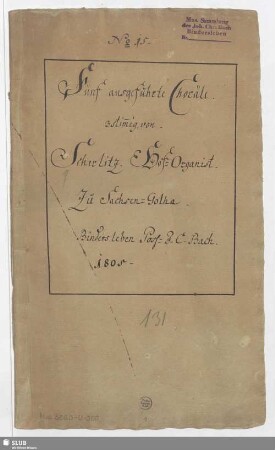 No 15.
Mus. Sammlung
des Joh. Chr. Bach
Bindersleben
No
Fünf ausgeführte Choräle
3stimig von
Scherlitz Hof=Organist.
Zu Sachsen=Gotha
Bindersleben Poss. J. C. Bach.
1805 -
131
SLUB